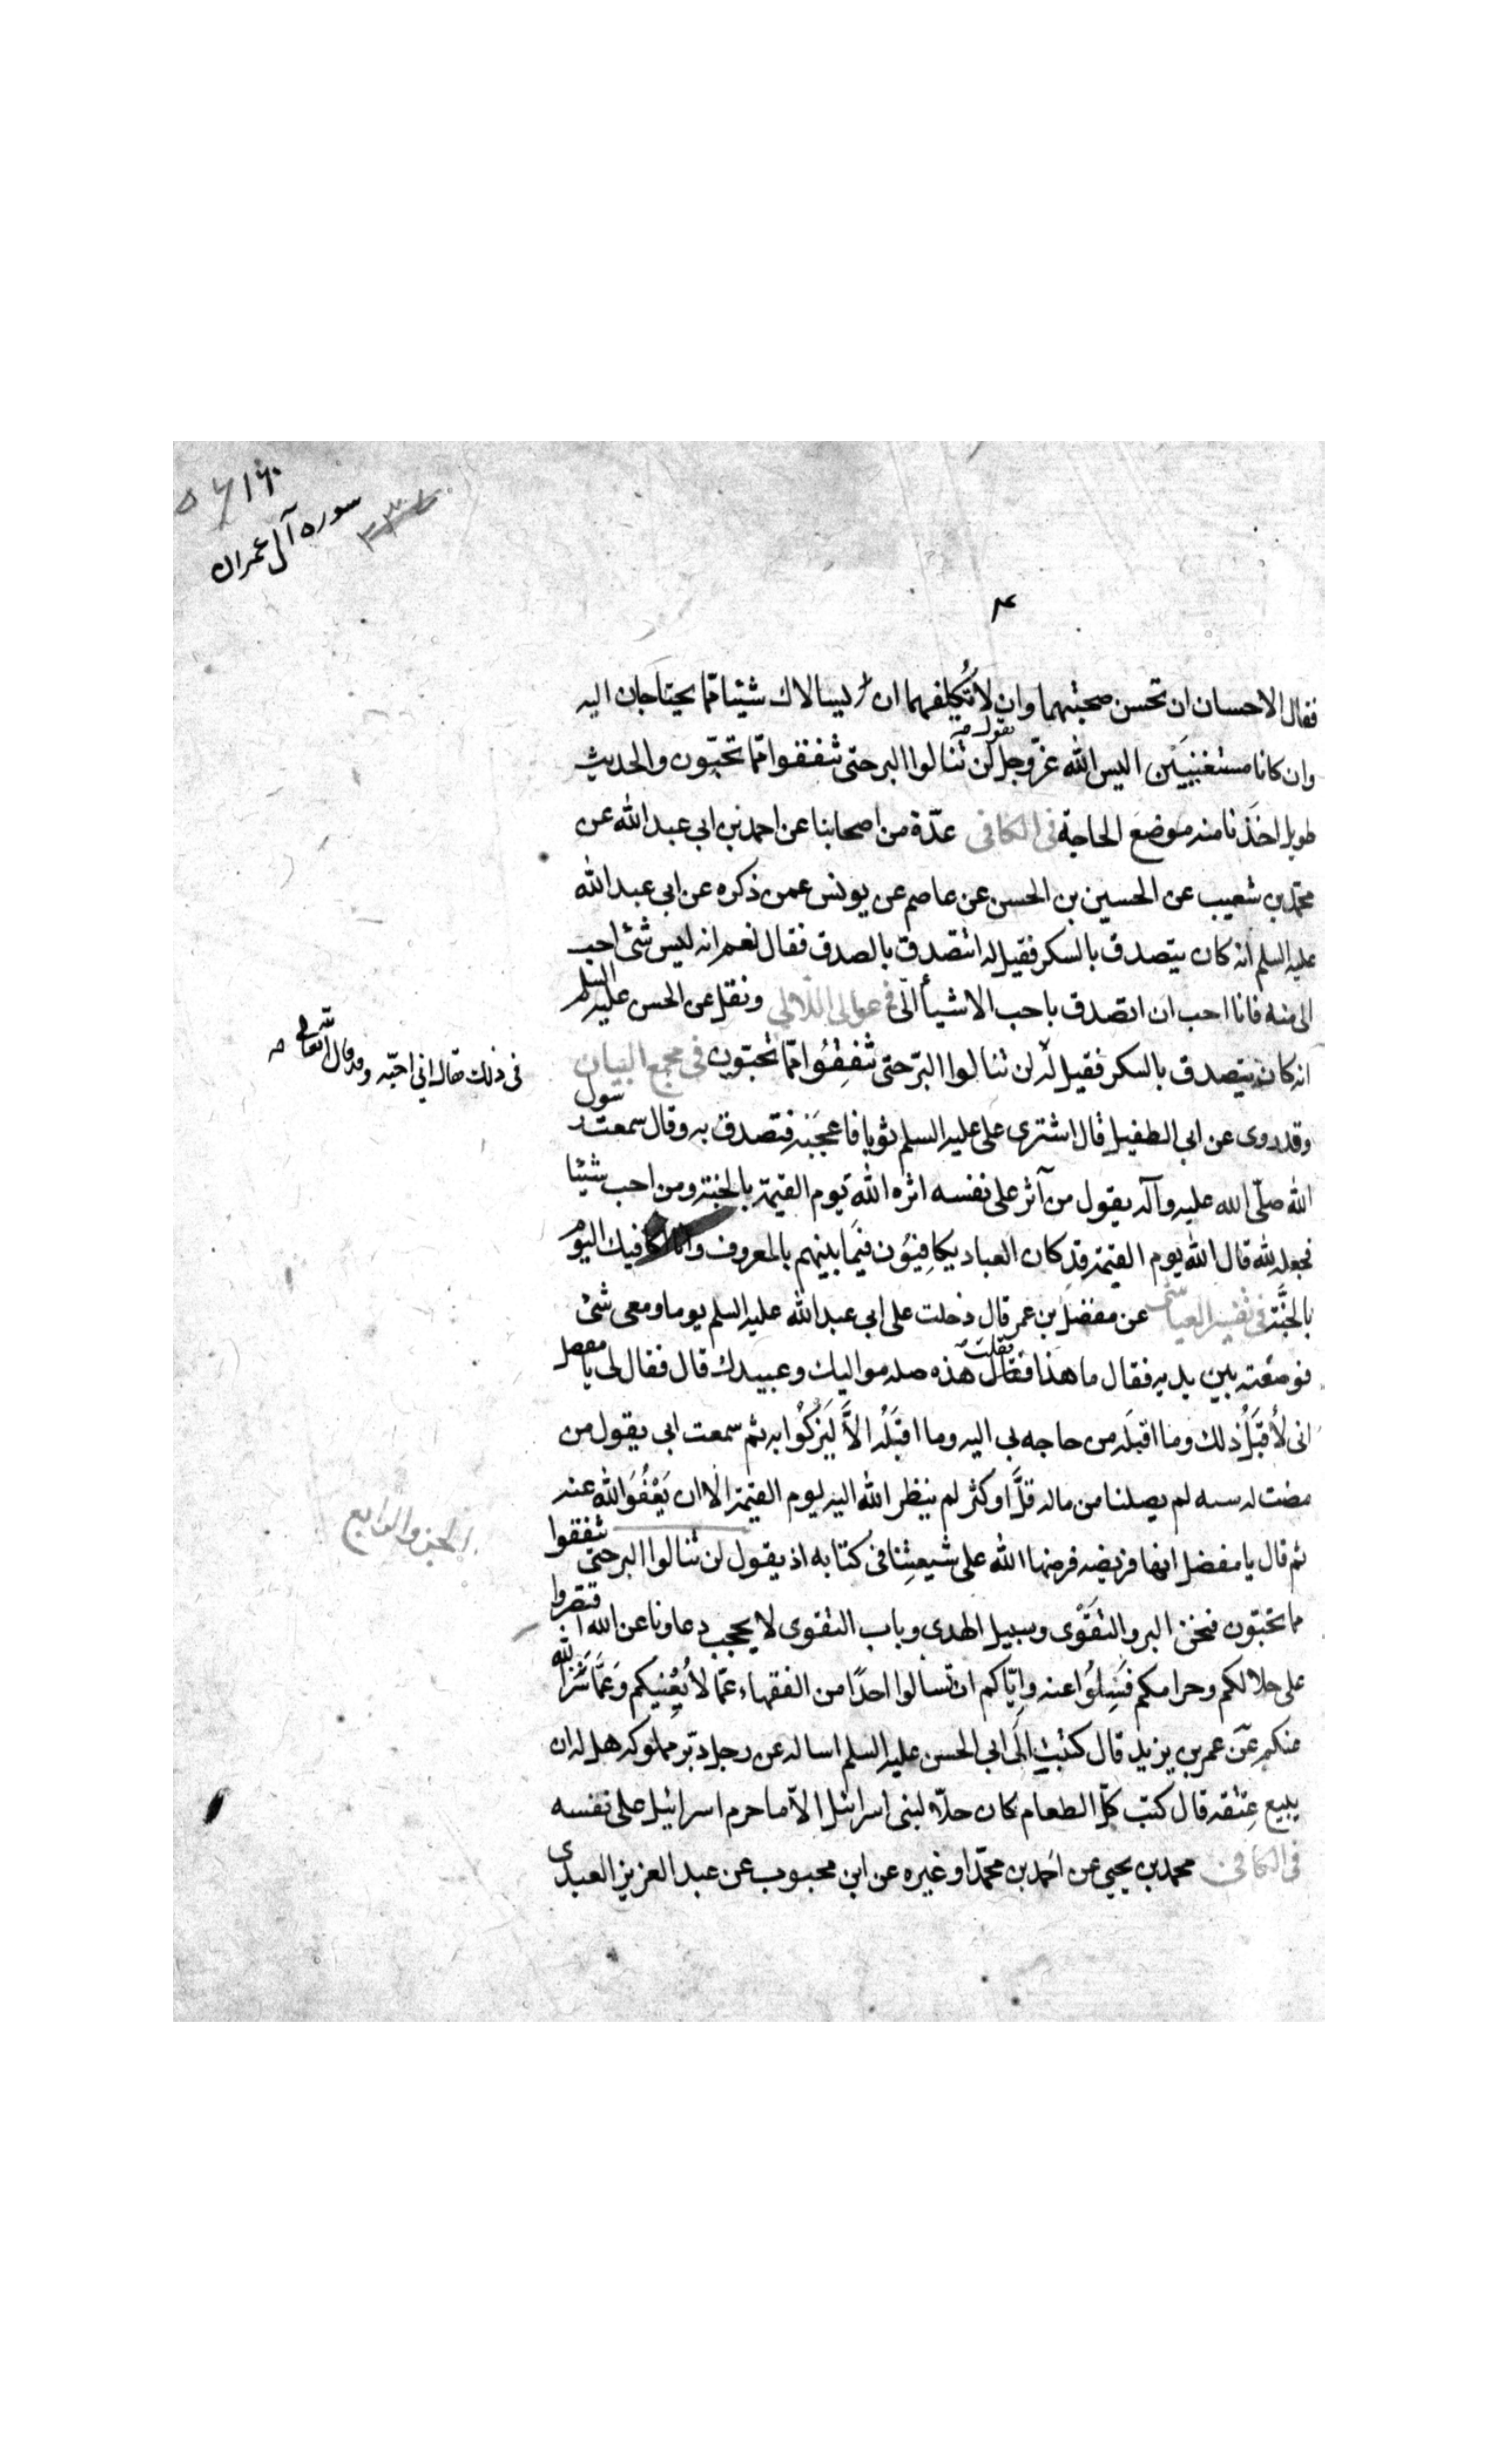 سوره آل عمران
فقال الاحسان ان تحسن صحبتهما وان لا تكلفهما ان يسالاك شيئا ممّا يحتاجان اليه
وان كانا مستغنيين اليس الله عزّ وجل يقول لن تنالوا البر حتى تنفقوا ممّا تحبّون والحديث
طويل اخذنا منه موضع الحاجة فى الكافى عدّة من اصحابنا عن احمد بن ابى عبد الله عن
محمّد بن شعيب عن الحسين بن الحسن عن عاصم عن يونس عمن ذكره عن ابى عبد الله
عليه السلم انه كان يتصدق بالسكر فقيل له اتتصدق بالصدق فقال نعم انه ليس شئ احب
الى منه فانا احب ان اتصدق باحب الاشيأ الىّ فى عوالى اللآلى ونقل عن الحسن عليه السلم
انه كان يتصدق بالسكر فقيل له لن تنالوا البرّ حتى تنفقوا ممّا تحبّون فى مجمع البيان
فى ذلك فقال انى احبّه وقد قال الله تعالى صه
وقد روى عن ابى الطفيل قال اشترى على عليه السلم ثوبا فاعجبه فتصدق به وقال سمعت رسول
الله صلّى الله عليه وآله يقول من آثر على نفسه اثره الله يوم القيمة بالجنة ومن احب شيئا
فجعله لله قال الله يوم القيمة قد كان العباد يكافئون فيما بينهم بالمعروف وانا اكافيك اليوم
بالجنّة فى تفسير العياشى عن مفضل بن عمر قال دخلت على ابى عبد الله عليه السلم يوما ومعى شئ
فوضعته بين يديه فقال ما هذا فقلت هذه صله مواليك وعبيدك قال فقال لى يا مفضل
انى لأقبل ذلك وما اقبله من حاجه بى اليه وما اقبله الاّ ليزكّوا به ثم سمعت ابى يقول من
مضت له سنه لم يصلنا من ماله قلّ او كثر لم ينظر الله اليه يوم القيمة الا ان يعفو الله عنه
ثم قال يا مفضل انها فريضه فرضها الله على شيعتنا فى كتابه اذ يقول لن تنالوا البر حتى تنفقوا
الجزو الرابع
مما تحبّون فنحن البر والتقوى وسبيل الهدى وباب التقوى لا يحجب دعاونا عن الله اقتصروا
على حلالكم وحرامكم فسلوا عنه واياكم ان تسالوا احدًا من الفقهاء عمّا لا يعنيكم وعمّا ستر الله
عنكم عن عمر بن يزيد قال كتبت الى ابى الحسن عليه السلم اساله عن رجل دبّر مملوكه هل له ان
يبيع عتقه قال كتب كلّ الطعام كان حلّا لبنى اسرائيل الاّ ما حرم اسرائيل على نفسه
فى الكافى محمد بن يحيى عن احمد بن محمّد او غيره عن ابن محبوب عن عبد العزيز العبدى